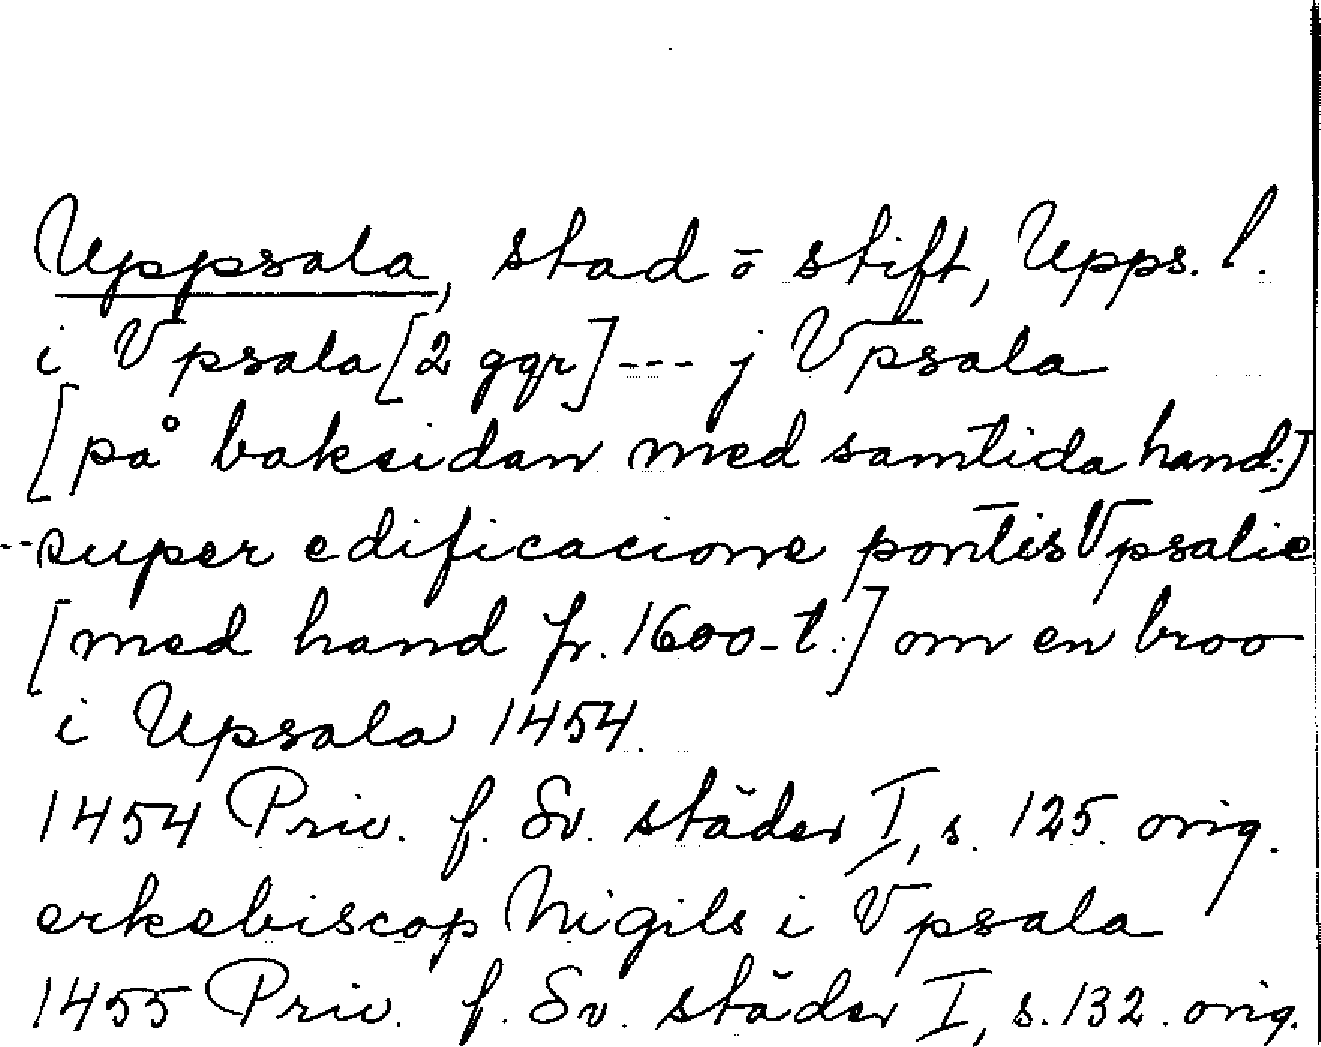 Uppsala, stad o stift, Upps. l.
i Vpsala [2 ggr] --- j Vpsala
[på baksidan med samtida hand:]
--super edificacione pontis Vpsalie
[med hand fr. 1600-t.:] om en broo
i Upsala 1454.
1454 Priv. f. Sv. städer I, s. 125. orig.
erkebiscop Nigils i Vpsala
1455 Priv. f. Sv. städer I, s. 132. orig.